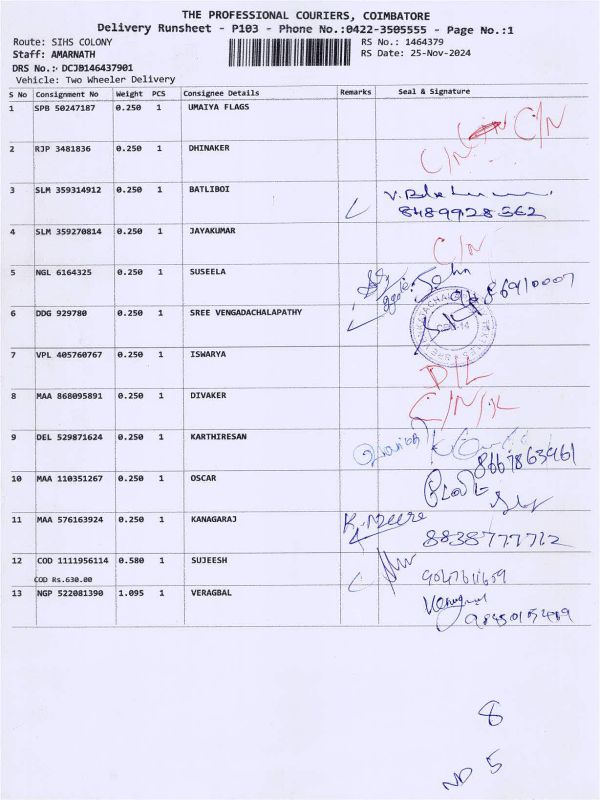 THE PROFESSIONAL COURIERS, COIMBATORE
Delivery Runsheet - P103 - Phone No.:0422-3505555 - Page No.:1
Route: SIHS COLONY RS No.: 1464379
Staff: AMARNATH RS Date: 25-Nov-2024
DRS No.: DCJB146437901
Vehicle: Two Wheeler Delivery
S No Consignment No Weight PCS Consignee Details Remarks Seal & Signature
1 SPB 50247187 0.250 1 UMAIYA FLAGS C/N
2 RJP 3481836 0.250 1 DHINAKER C/N
3 SLM 359314912 0.250 1 BATLIBOI
8489928562
4 SLM 359270814 0.250 1 JAYAKUMAR C/N
5 NGL 6164325 0.250 1 SUSEELA
6 DDG 929780 0.250 1 SREE VENGADACHALAPATHY
7 VPL 405760767 0.250 1 ISWARYA D/L
8 MAA 868095891 0.250 1 DIVAKER
9 DEL 529871624 0.250 1 KARTHIRESAN
8667863461
10 MAA 110351267 0.250 1 OSCAR
11 MAA 576163924 0.250 1 KANAGARAJ
8838777712
12 COD 1111956114 0.580 1 SUJEESH
COD Rs.630.00
13 NGP 522081390 1.095 1 VERAGBAL
8
ND 5